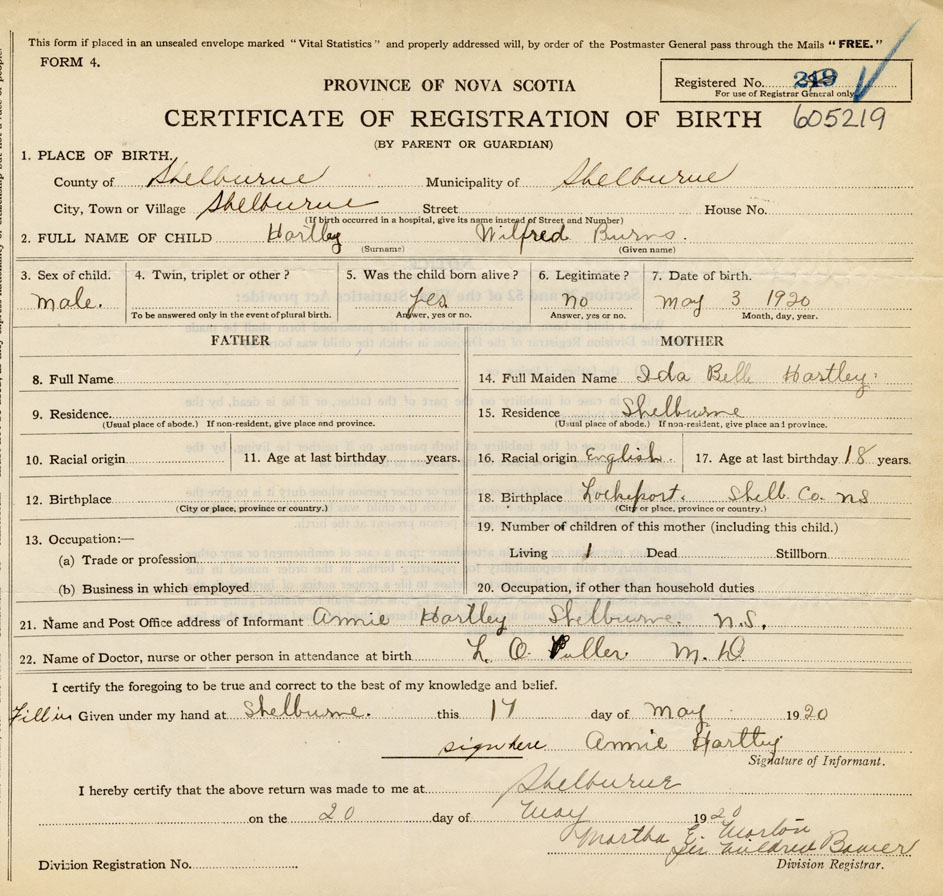 This form if placed in an unsealed envelope marked "Vital Statistics" and properly addressed will, by order of the Postmaster General pass through the Mails "FREE."
FORM 4.
Registered No. 249
For use of Registrar General only
PROVINCE OF NOVA SCOTIA
CERTIFICATE OF REGISTRATION OF BIRTH 605219
(BY PARENT OR GUARDIAN)
1. PLACE OF BIRTH.
County of Shelburne Municipality of Shelburne
City, Town or Village Shelburne Street House No.
(If birth occurred in a hospital, give its name instead of Street and Number)
2. FULL NAME OF CHILD Hartley Wilfred Burns.
(Surname) (Given name)
3. Sex of child. 4. Twin, triplet or other? 5. Was the child born alive? 6. Legitimate? 7. Date of birth.
male. yes no may 3 1920
To be answered only in the event of plural birth. Answer, yes or no. Answer, yes or no. Month, day, year.
FATHER MOTHER
8. Full Name 14. Full Maiden Name Ida Bell Hartley.
9. Residence. 15. Residence Shelburne
(Usual place of abode.) If non-resident, give place and province. (Usual place of abode.) If non-resident, give place and province.
10. Racial origin 11. Age at last birthday years. 16. Racial origin English. 17. Age at last birthday 18 years.
12. Birthplace 18. Birthplace Lockeport. Shelb. Co. ns
(City or place, province or country.) (City or place, province or country.)
13. Occupation:— 19. Number of children of this mother (including this child.)
(a) Trade or profession Living 1 Dead Stillborn
(b) Business in which employed 20. Occupation, if other than household duties
21. Name and Post Office address of Informant Annie Hartley Shelburne. N.S.
22. Name of Doctor, nurse or other person in attendance at birth L. O. Fuller. M. D
I certify the foregoing to be true and correct to the best of my knowledge and belief.
Fill in Given under my hand at Shelburne. this 17 day of may 1920
sign here Annie Hartley
Signature of Informant.
I hereby certify that the above return was made to me at Shelburne
on the 20 day of May 1920
Martha E. Morton
Per Mildred Bower
Division Registration No. Division Registrar.